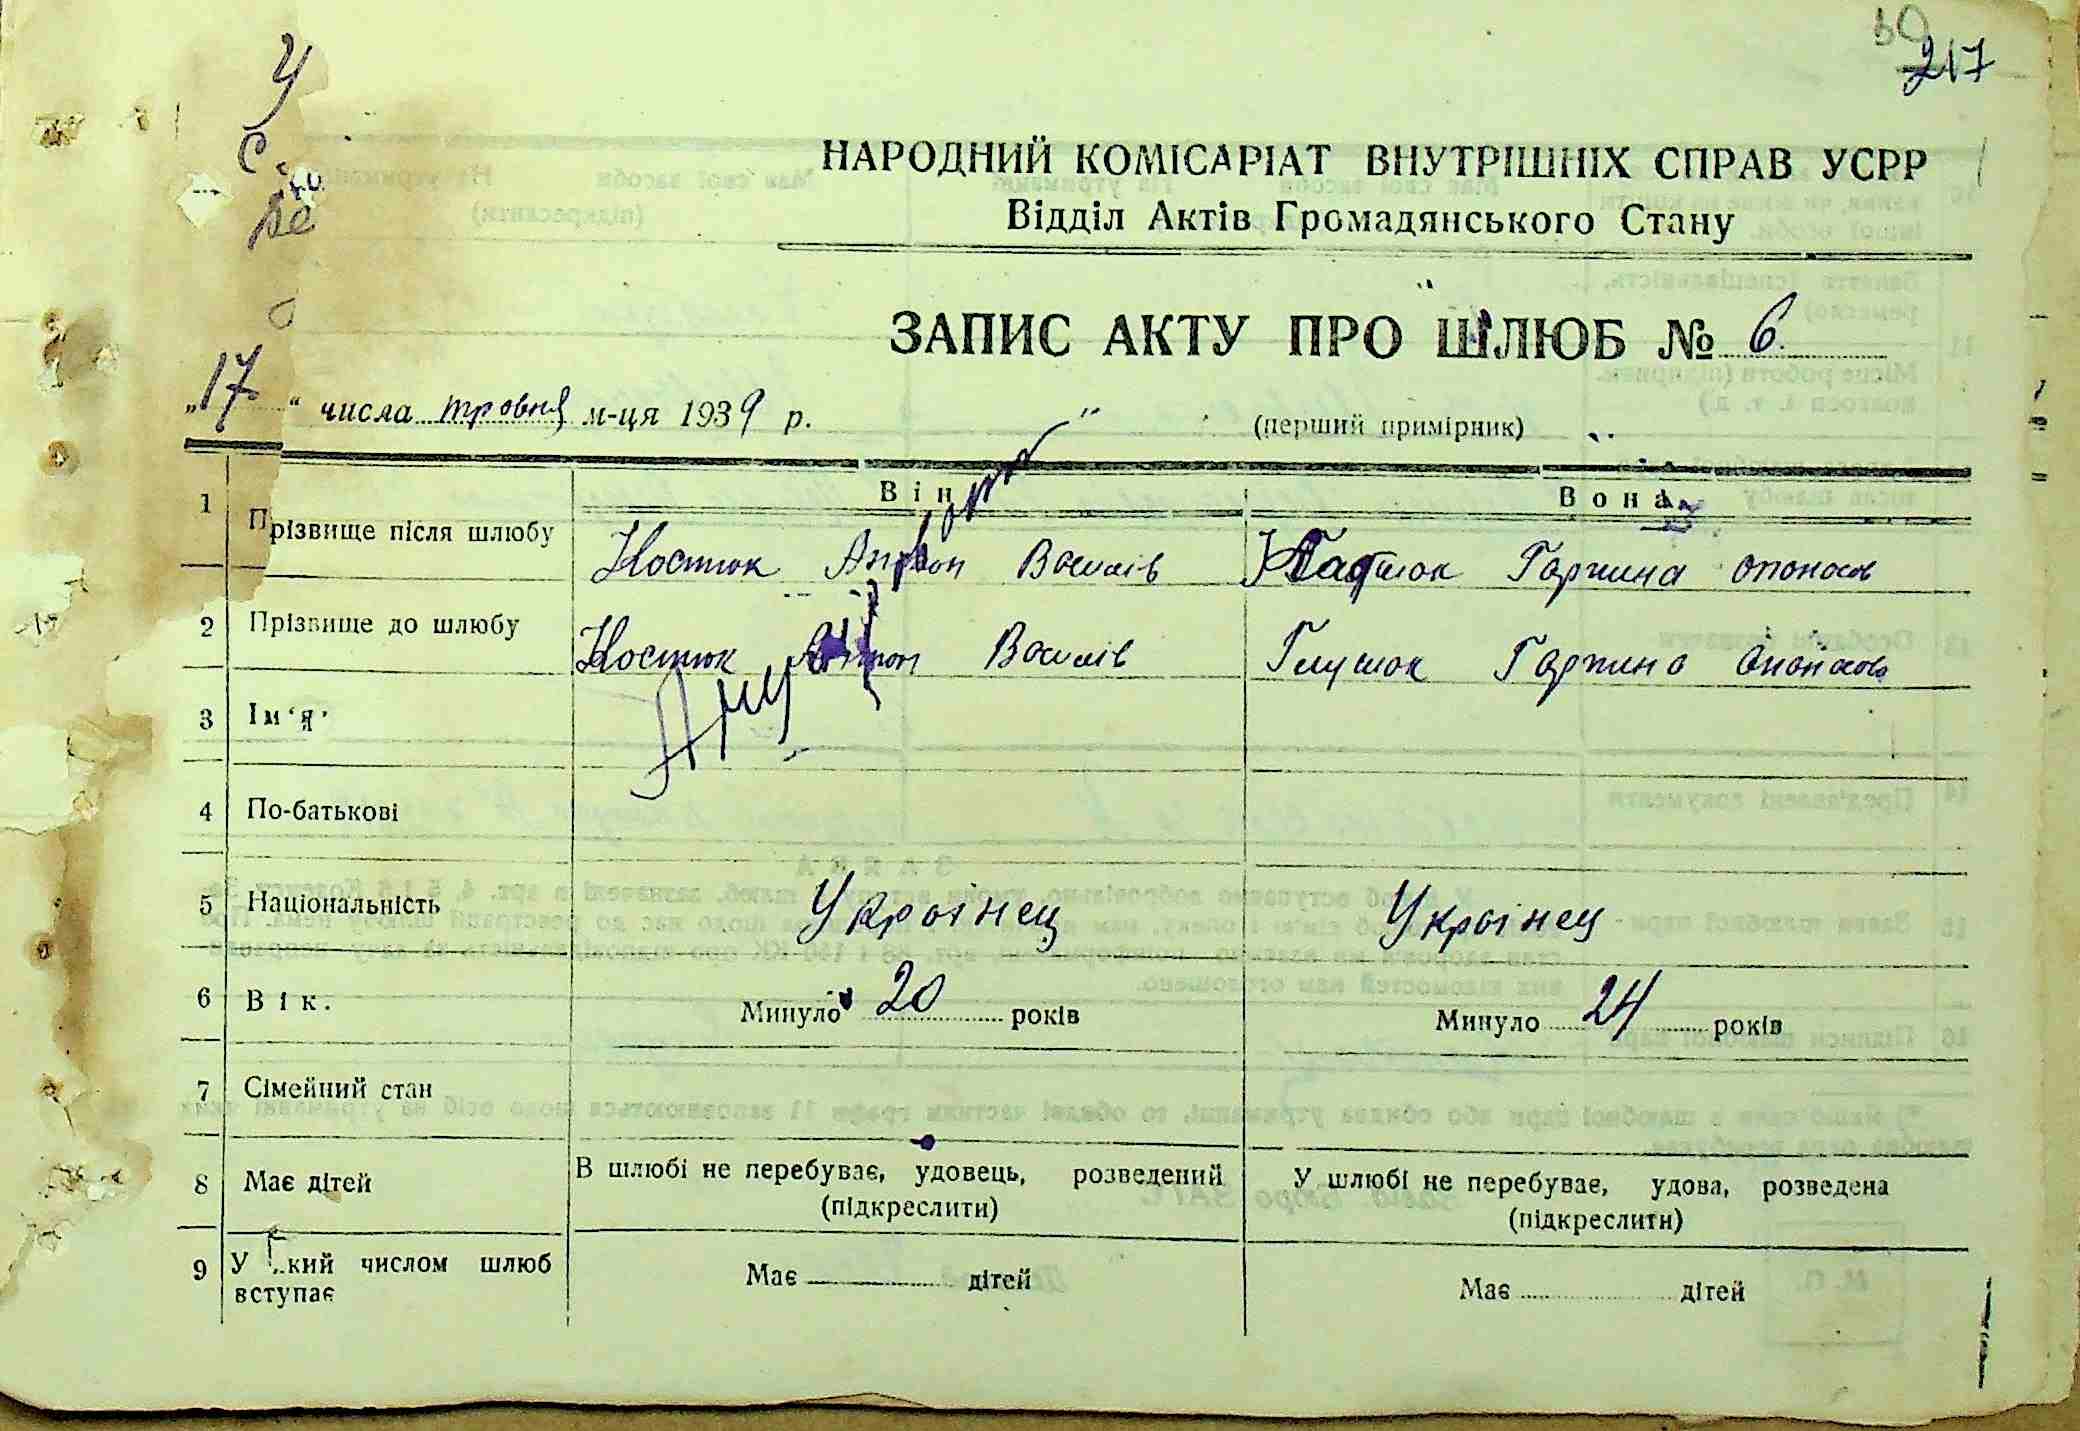 217
НАРОДНИЙ КОМІСАРІАТ ВНУТРІШНІХ СПРАВ УСРР
Відділ Актів Громадянського Стану
ЗАПИС АКТУ ПРО ШЛЮБ № 6
„17“ числа тровня м-ця 1939 р.
(перший примірник)
1 Прізвище після шлюбу
Він
Вона
Костюк Антон Василів
Костюк Горпина Опонасов
2 Прізвище до шлюбу
Костюк Антон Василів
Глушок Горпина Опонасов
3 Ім'я
4 По-батькові
5 Національність
Украінец
Украінец
6 Вік.
Минуло 20 років
Минуло 24 років
7 Сімейний стан
8 Має дітей
В шлюбі не перебуває, удовець, розведений
(підкреслити)
У шлюбі не перебуває, удова, розведена
(підкреслити)
9 У кий числом шлюб
вступає
Має дітей
Має дітей